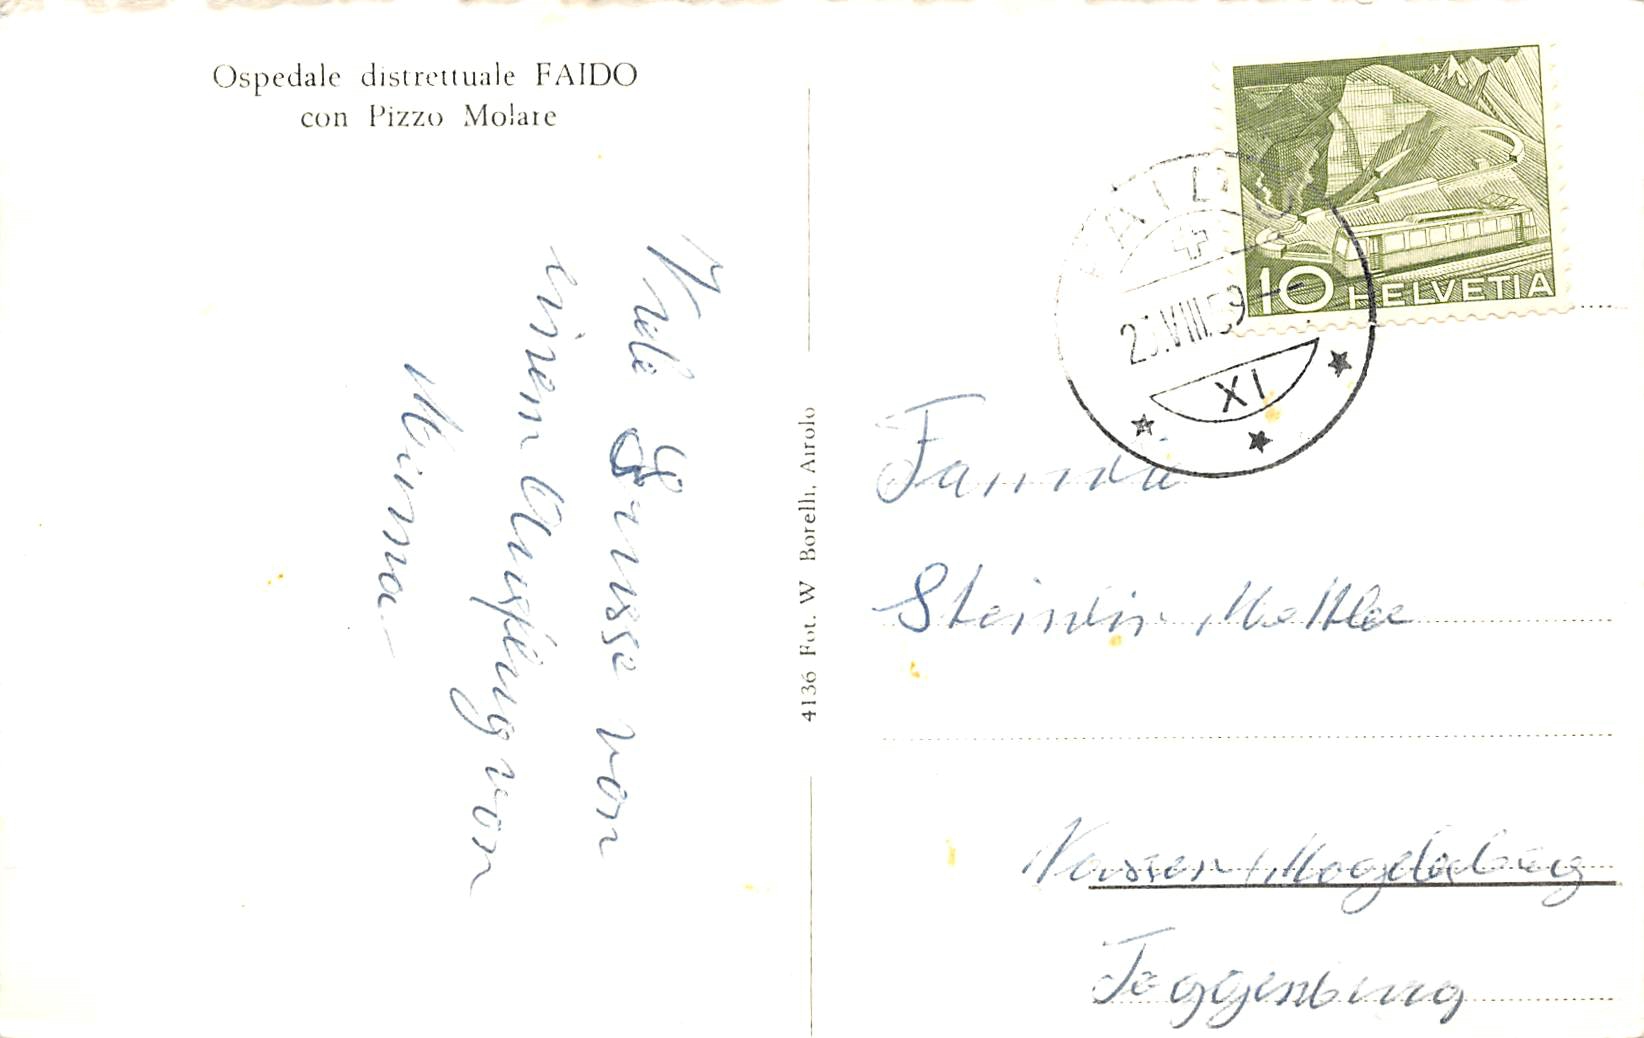 Ospedale distrettuale FAIDO
con Pizzo Molare
Viele Grüsse von
einem Ausflug von
Mina
4136 Fot. W Borelli, Airolo
FAIDO
VIII.59
XI
10 HELVETIA
Familie
Steinlin
Nassen Mogelsberg
Toggenburg